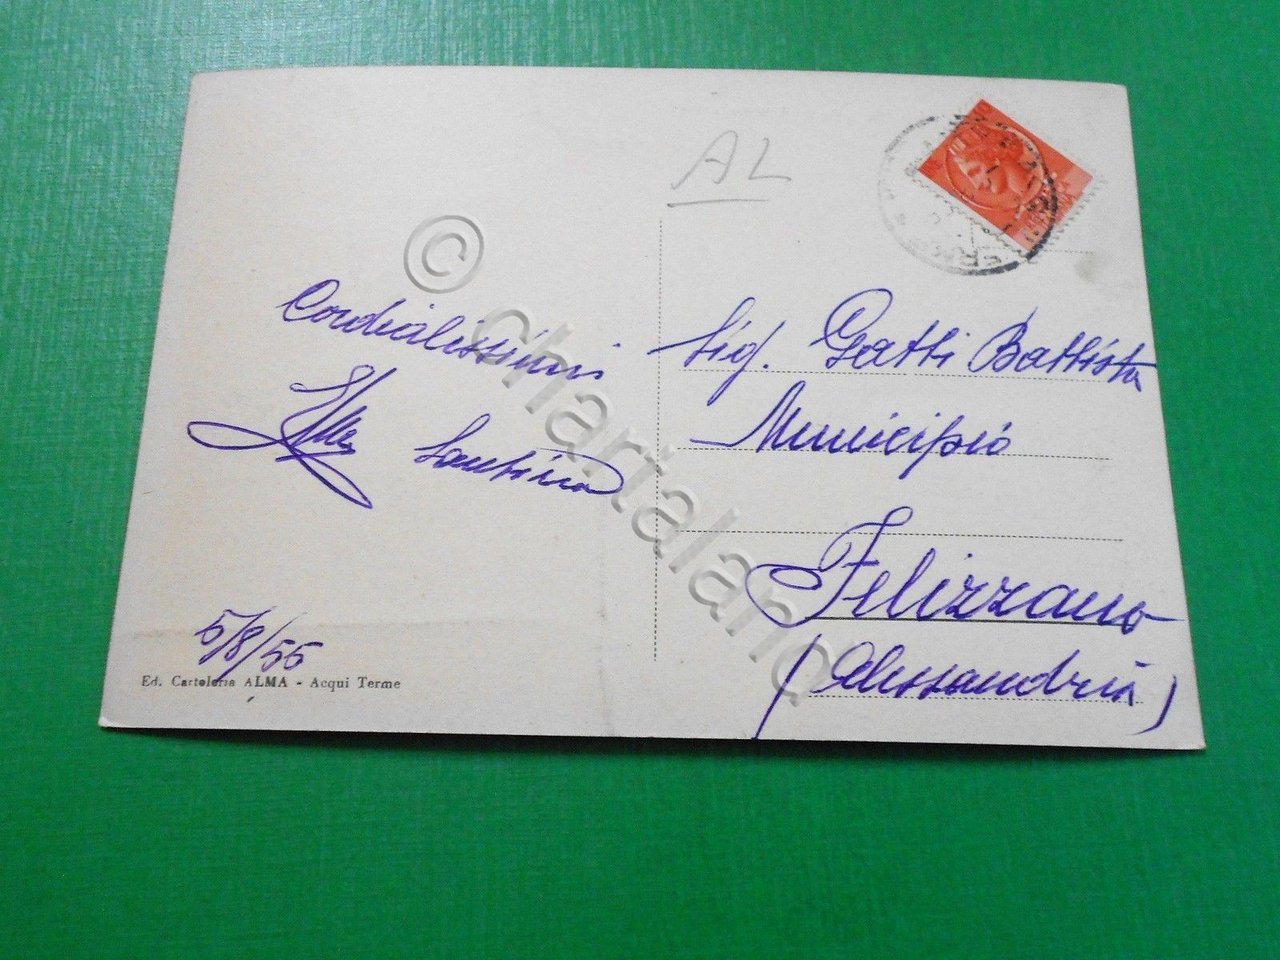 AL
Cordialissimi
Santina
5/8/55
Ed. Cartoleria ALMA - Acqui Terme
Sig. Gatti Battista
Municipio
Felizzano
(Alessandria)
© chartaland